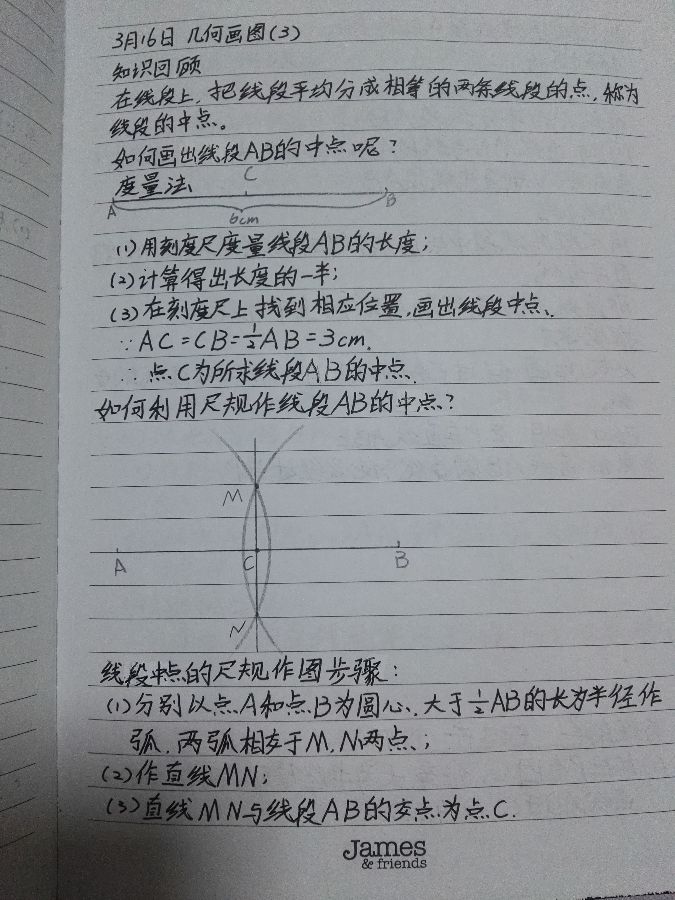 3月16日 几何画图(3)
知识回顾
在线段上,把线段平均分成相等的两条线段的点,称为
线段的中点。
如何画出线段AB的中点呢?
度量法
C
A
B
6cm
(1)用刻度尺度量线段AB的长度;
(2)计算得出长度的一半;
(3)在刻度尺上找到相应位置,画出线段中点.
∵AC=CB=½AB=3cm.
∴点C为所求线段AB的中点.
如何利用尺规作线段AB的中点?
M
A
C
B
N
线段中点的尺规作图步骤:
(1)分别以点A和点B为圆心,大于½AB的长为半径作
弧,两弧相交于M,N两点;
(2)作直线MN;
(3)直线MN与线段AB的交点为点C.
James
& friends